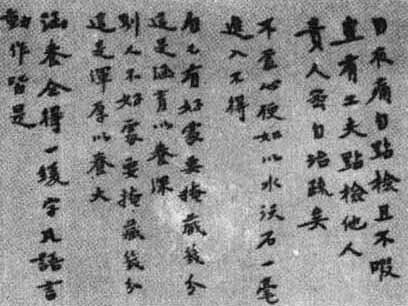 日夜痛自點檢且不暇
豈有工夫點檢他人
責人密自治疏矣
不虛心便如以水沃石一毫
進入不得
自己有好處要掩藏幾分
這是涵育以養深
別人不好處要掩藏幾分
這是渾厚以養大
涵養全得一緩字凡語言
動作皆是